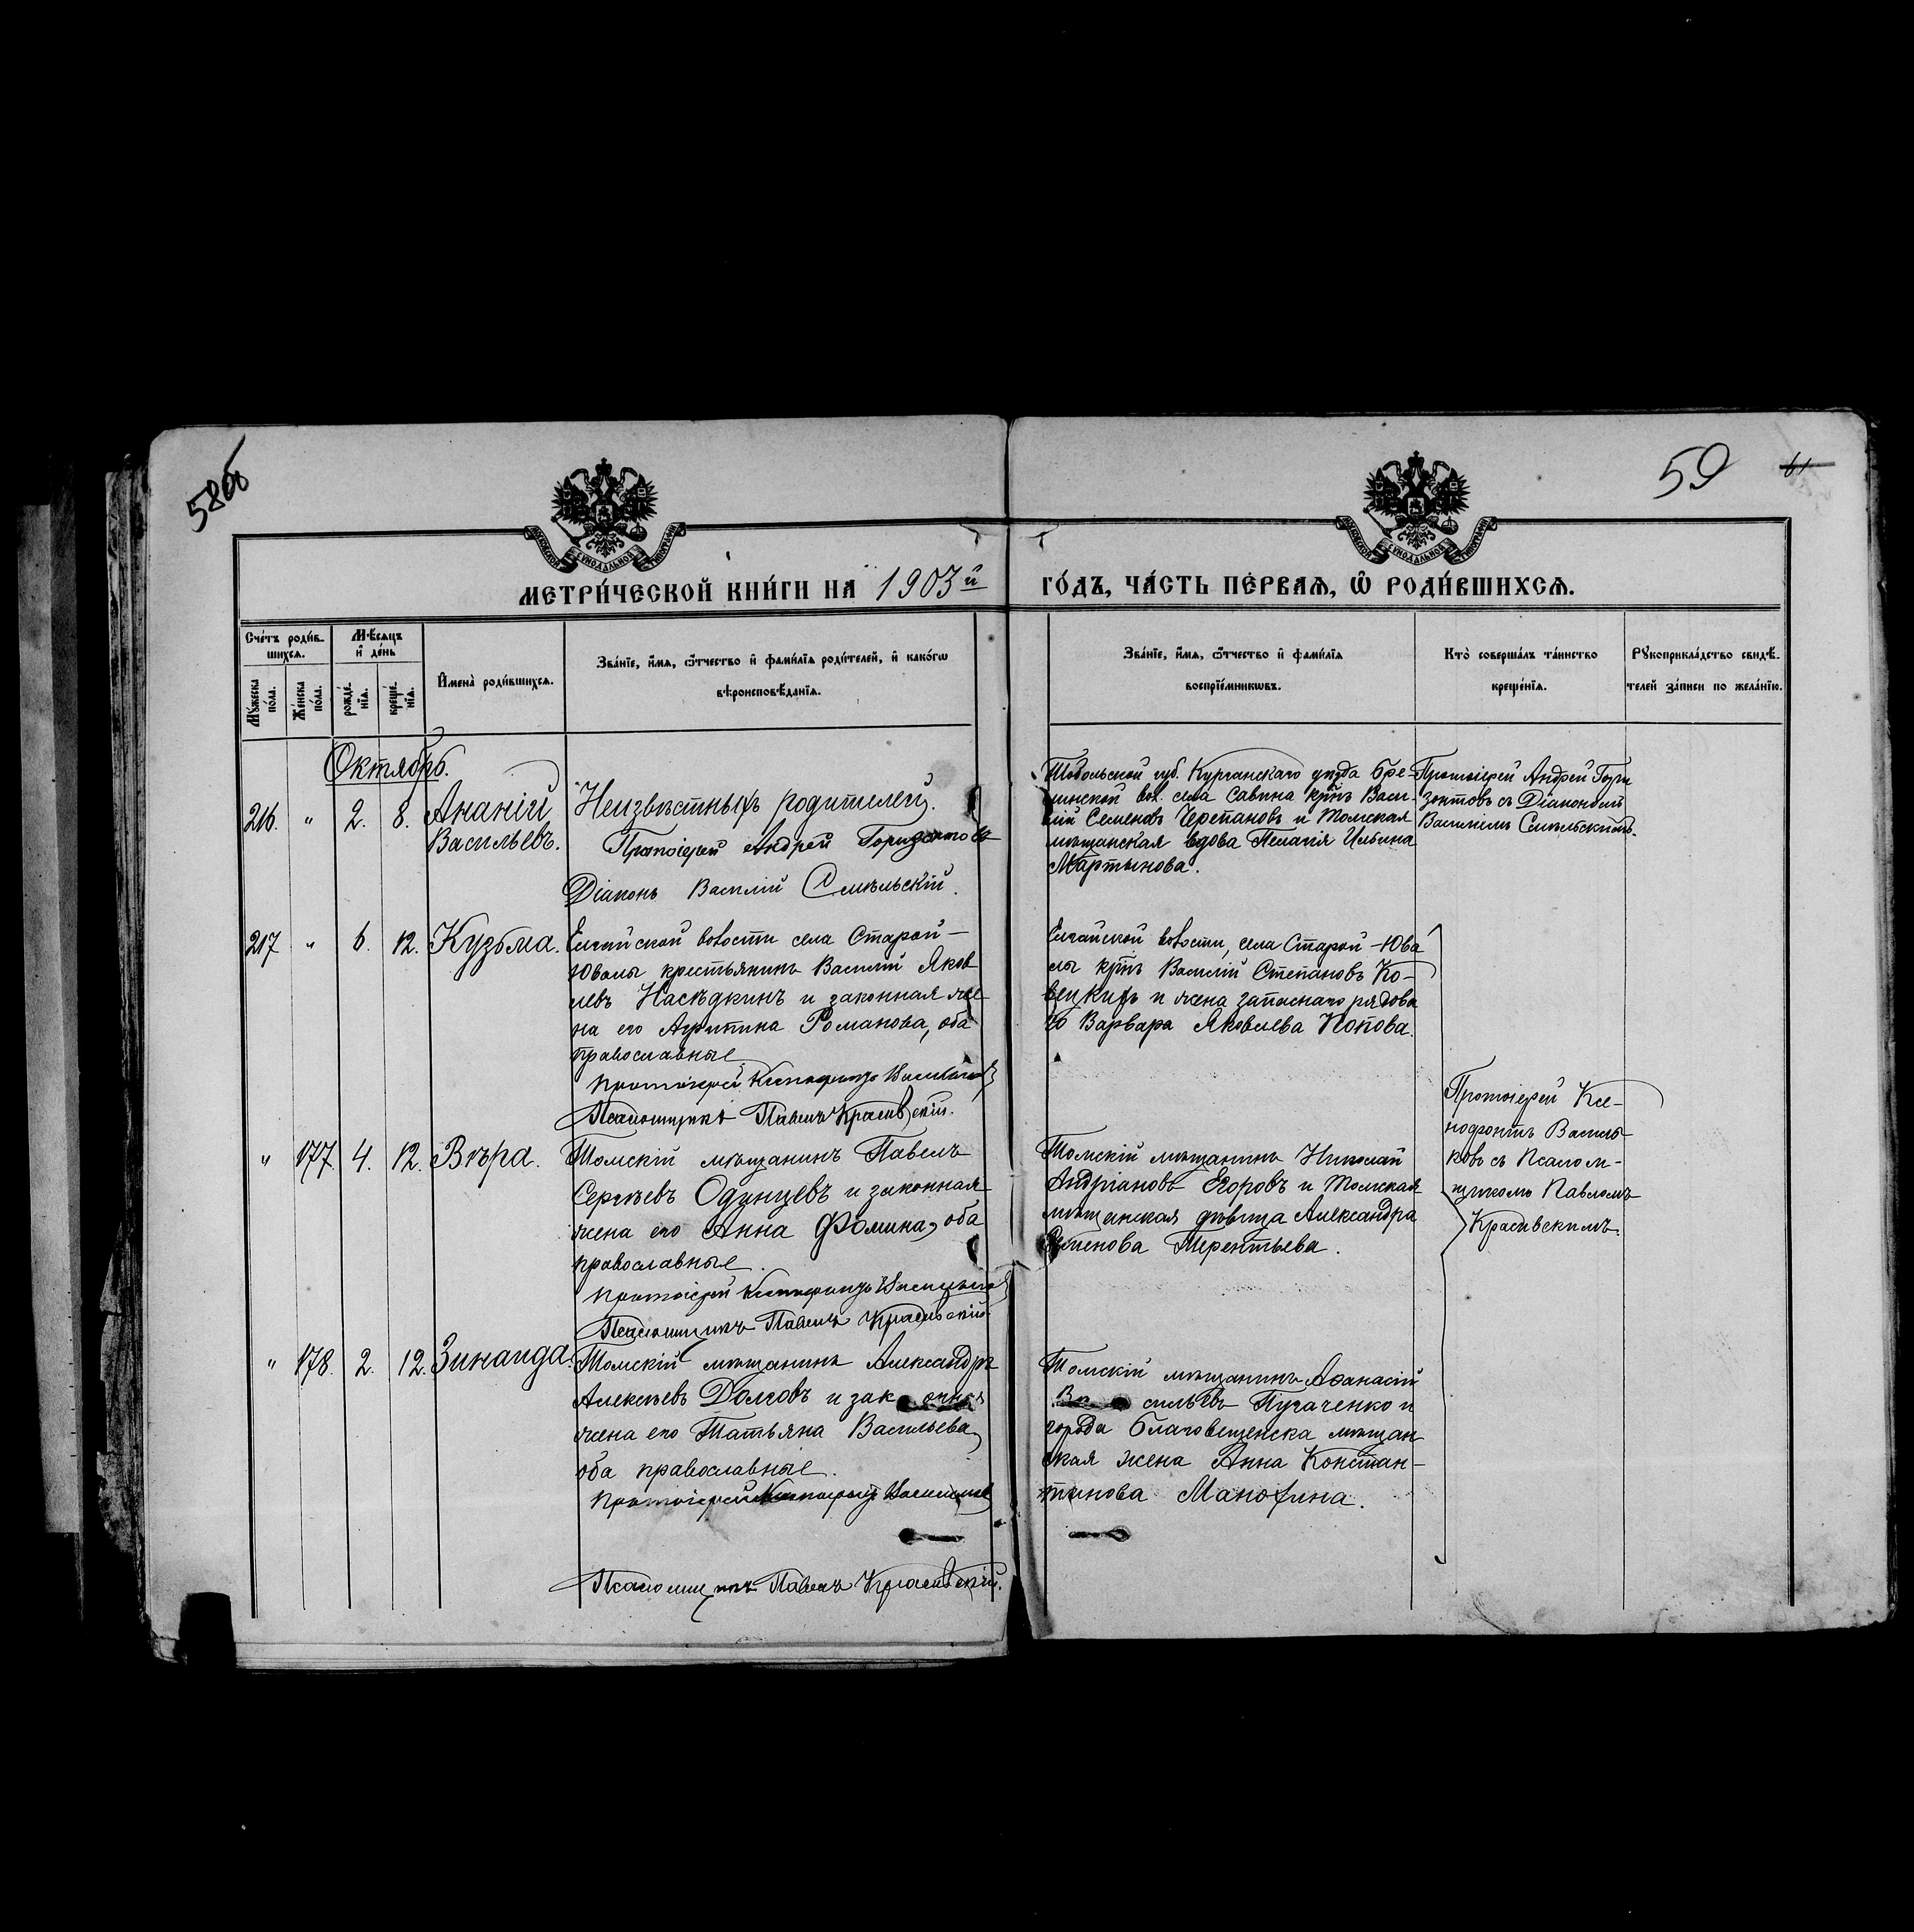 58об
59
61
МОСКОВСКОЙ СѴНОДАЛЬНОЙ ТИПОГРАФІИ
МОСКОВСКОЙ СѴНОДАЛЬНОЙ ТИПОГРАФІИ
МЕТРИ́ЧЕСКОЙ КНИ́ГИ НА 1903й
ГО́ДЪ, ЧА́СТЬ ПЕ́РВАѦ, Ѽ РОДИ́ВШИХСѦ.
Сче́тъ роди́в-
шихсѧ.
Мѣ́сѧцъ
и҆ де́нь
Мꙋ́жеска
по́ла.
Же́нска
по́ла.
рожде́-
нїѧ.
креще́-
нїѧ.
И҆мена̀ роди́вшихсѧ.
Зва́нїе, и҆́мѧ, ѻ҆́тчество и҆ фами́лїѧ роди́телей, и҆ како́гѡ
вѣроисповѣ́данїѧ.
Зва́нїе, и҆́мѧ, ѻ҆́тчество и҆ фами́лїѧ
воспрїе́мникѡвъ.
Кто̀ соверша́лъ та́инство
креще́нїѧ.
Рꙋкоприкла́дство свидѣ́-
телей за́писи по жела́нїю.
Октябрь.
216. " 2. 8. Ананій
Васильевъ.
Неизвѣстныхъ родителей.
Протоіерей Андрей Горизонтовъ
Діаконъ Василій Смѣльскій.
Тобольской губ. Курганскаго уѣзда Бре-
вол. села Савина крнъ Васи-
лій Семеновъ Черепановъ и Томская
мѣщанская вдова Пелагія Ильина
Мартынова.
Протоіерей Андрей Гори
зонтовъ съ Діакономъ
Василіемъ Смѣльскимъ.
217 " 6. 12. Кузьма.
Елгайской волости села Старой-
Ювалы крестьянинъ Василій Яков
левъ Насѣдкинъ и законная же-
на его Агрипина Романова, оба
православные
Протоіерей Ксенофонтъ Васильковъ
Псаломщикъ Павелъ Красивскій.
Елгайской волости, села Старой-Юва
лы крнъ Василій Степановъ Ко-
и жена запаснаго рядова
го Варвара Яковлева Попова.
Протоіерей Ксе-
нофонтъ Василь-
ковъ съ Псалом-
щикомъ Павломъ
Красивскимъ.
" 177. 4. 12. Вѣра.
Томскій мѣщанинъ Павелъ
Сергѣевъ Одинцевъ и законная
жена его Анна Фомина, оба
православные.
Протоіерей Ксенофонтъ Васильковъ
Псаломщикъ Павелъ Красивскій
Томскій мѣщанинъ Николай
Андріановъ Егоровъ и Томская
мѣщанская дѣвица Александра
Семенова Терентьева.
" 178. 2. 12. Зинаида.
Томскій мѣщанинъ Александръ
Алексѣевъ Долговъ и законная
жена его Татьяна Васильева,
оба православные.
Протоіерей Ксенофонтъ Васильковъ
Псаломщикъ Павелъ Красивскій.
Томскій мѣщанинъ Аѳанасій
Васильевъ Пугаченко и
города Благовещенска мѣщан
ская жена Анна Констан-
тинова Манохина.